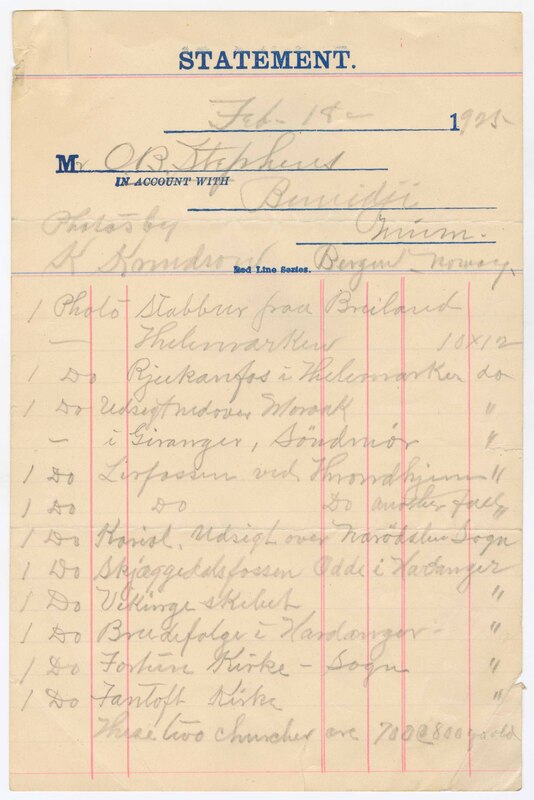 STATEMENT.
Feb - 18 - 1925
Mr O B Stephens
IN ACCOUNT WITH
Bemidji
Photos by Minn.
K Knudson Bergen Norway.
Red Line Series.
1 Photo Stabbur fraa Breiland
— Thelemarken 10x12
1 Do Rjukanfos i Thelemarken do
1 Do Udsigt nedover Maraak
— i Giranger, Söndmör "
1 Do Lerfossen ved Throndhjem "
1 Do Do Do another fall "
1 Do Udsigt over Narödalen Sogn
1 Do Skjæggedalsfossen Odde i Hardanger
1 Do Vikinge skibet "
1 Do Brudefølge i Hardanger - "
1 Do Fortun Kirke - Sogn "
1 Do Fantoft Kirke "
These two churches are 700 @ 800 yrs old